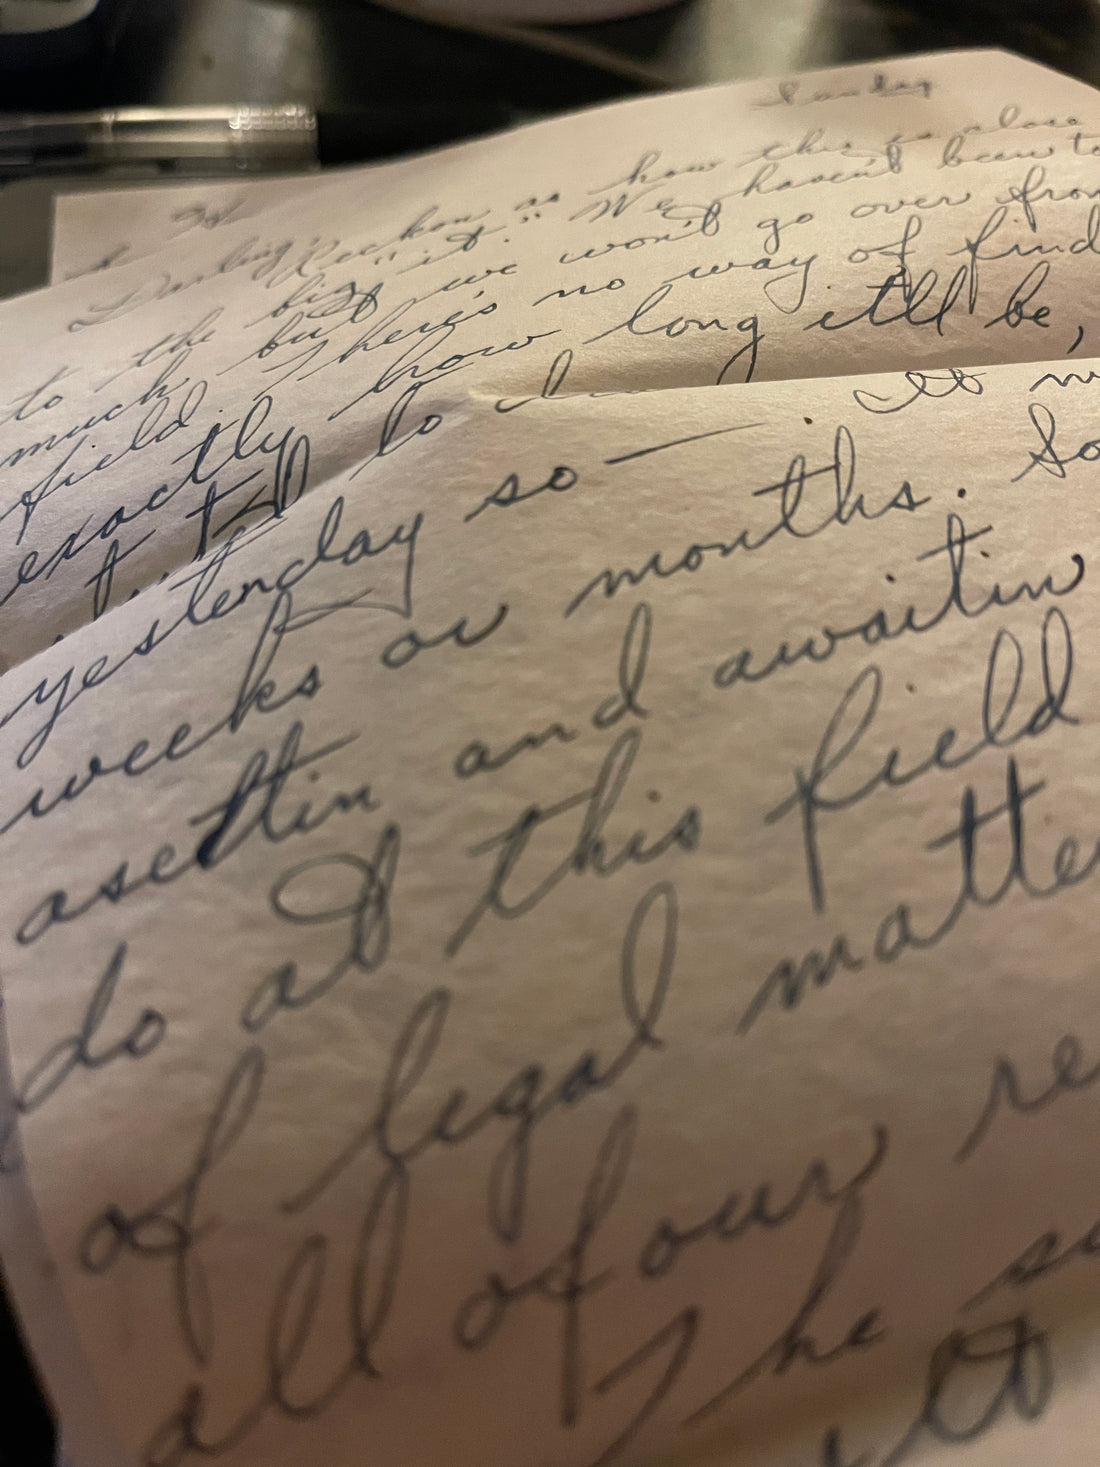 Sunday
Darling, Reckon as how this is close
to the big "it." We haven't been to
much but we won't go over from
field. There's no way of find
exactly how long it'll be,
to
yesterday so — . It
weeks or months. So
asettin and awaitin
do at this field
of legal matte
all of our re
The